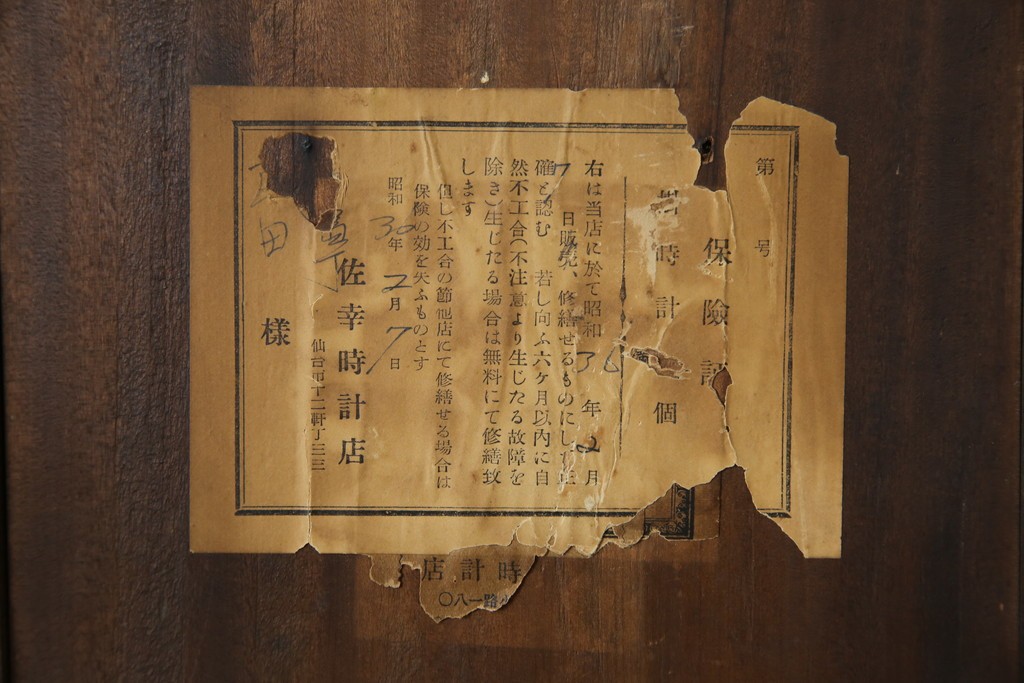 第 号
保險証
掛時計 個
右は当店に於て昭和36年2月
7日販売、修繕せるものにして正
確と認む 若し向ふ六ケ月以內に自
然不工合(不注意より生じたる故障を
除き)生じたる場合は無料にて修繕致
します
但し不工合の節他店にて修繕せる場合は
保険の効を失ふものとす
昭和30年2月7日
佐幸時計店
仙台市十二軒丁三三
田
様
時計店
路一八〇